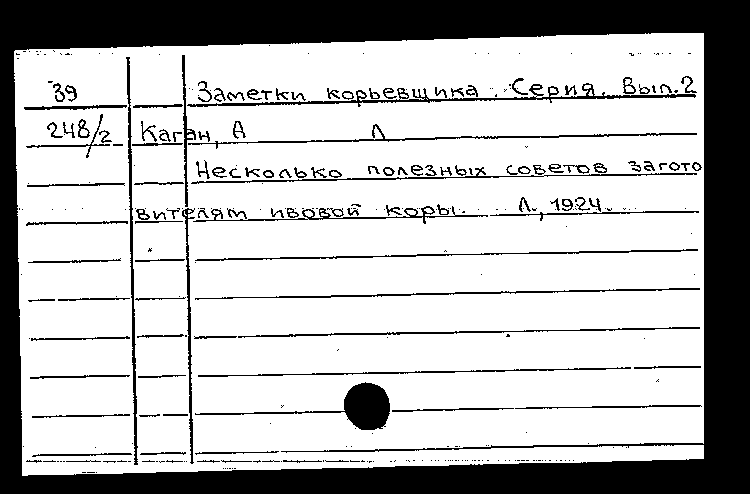 39 Заметки корьевщика. Серия. Вып.2
248/2 Каган, А Л
Несколько полезных советов загото
вителям ивовой коры. Л., 1924.